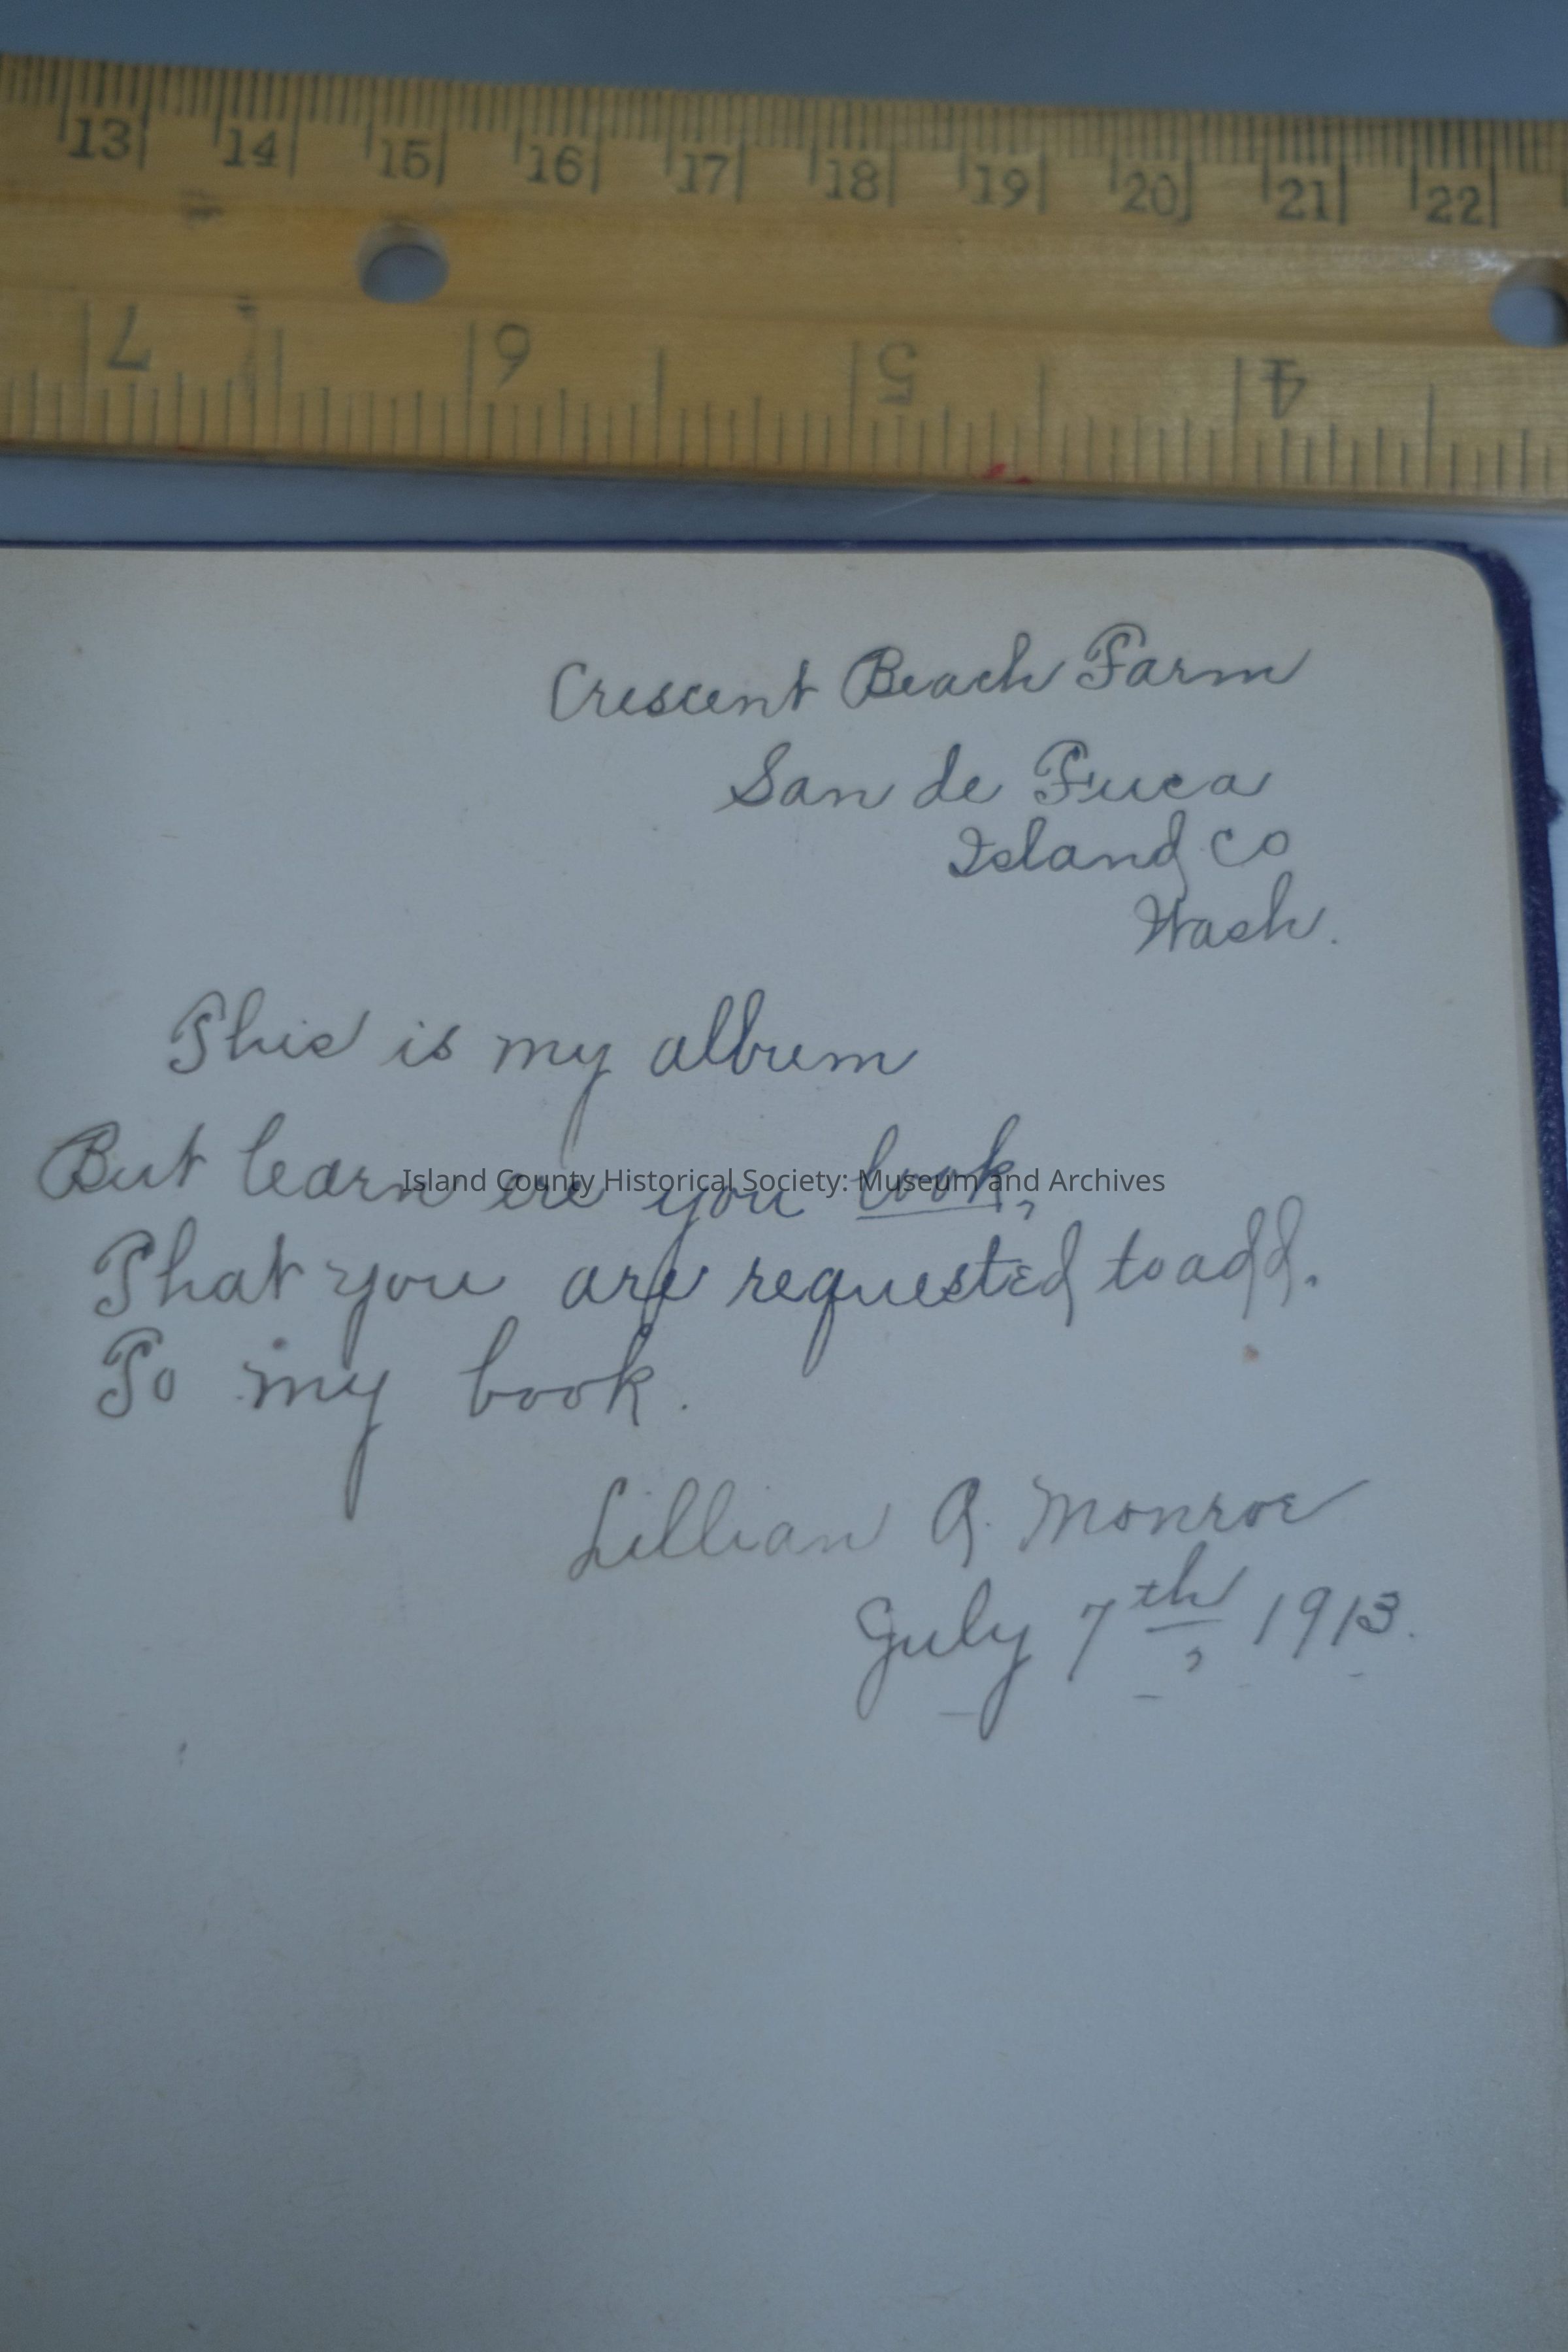 13 14 15 16 17 18 19 20 21 22
7 6 5 4
Crescent Beach Farm
San de Fuca
Island Co
Wash.
This is my album
But learn ere you look,
Island County Historical Society: Museum and Archives
That you are requested to add.
To my book.
Lillian A. Monroe
July 7th, 1913.